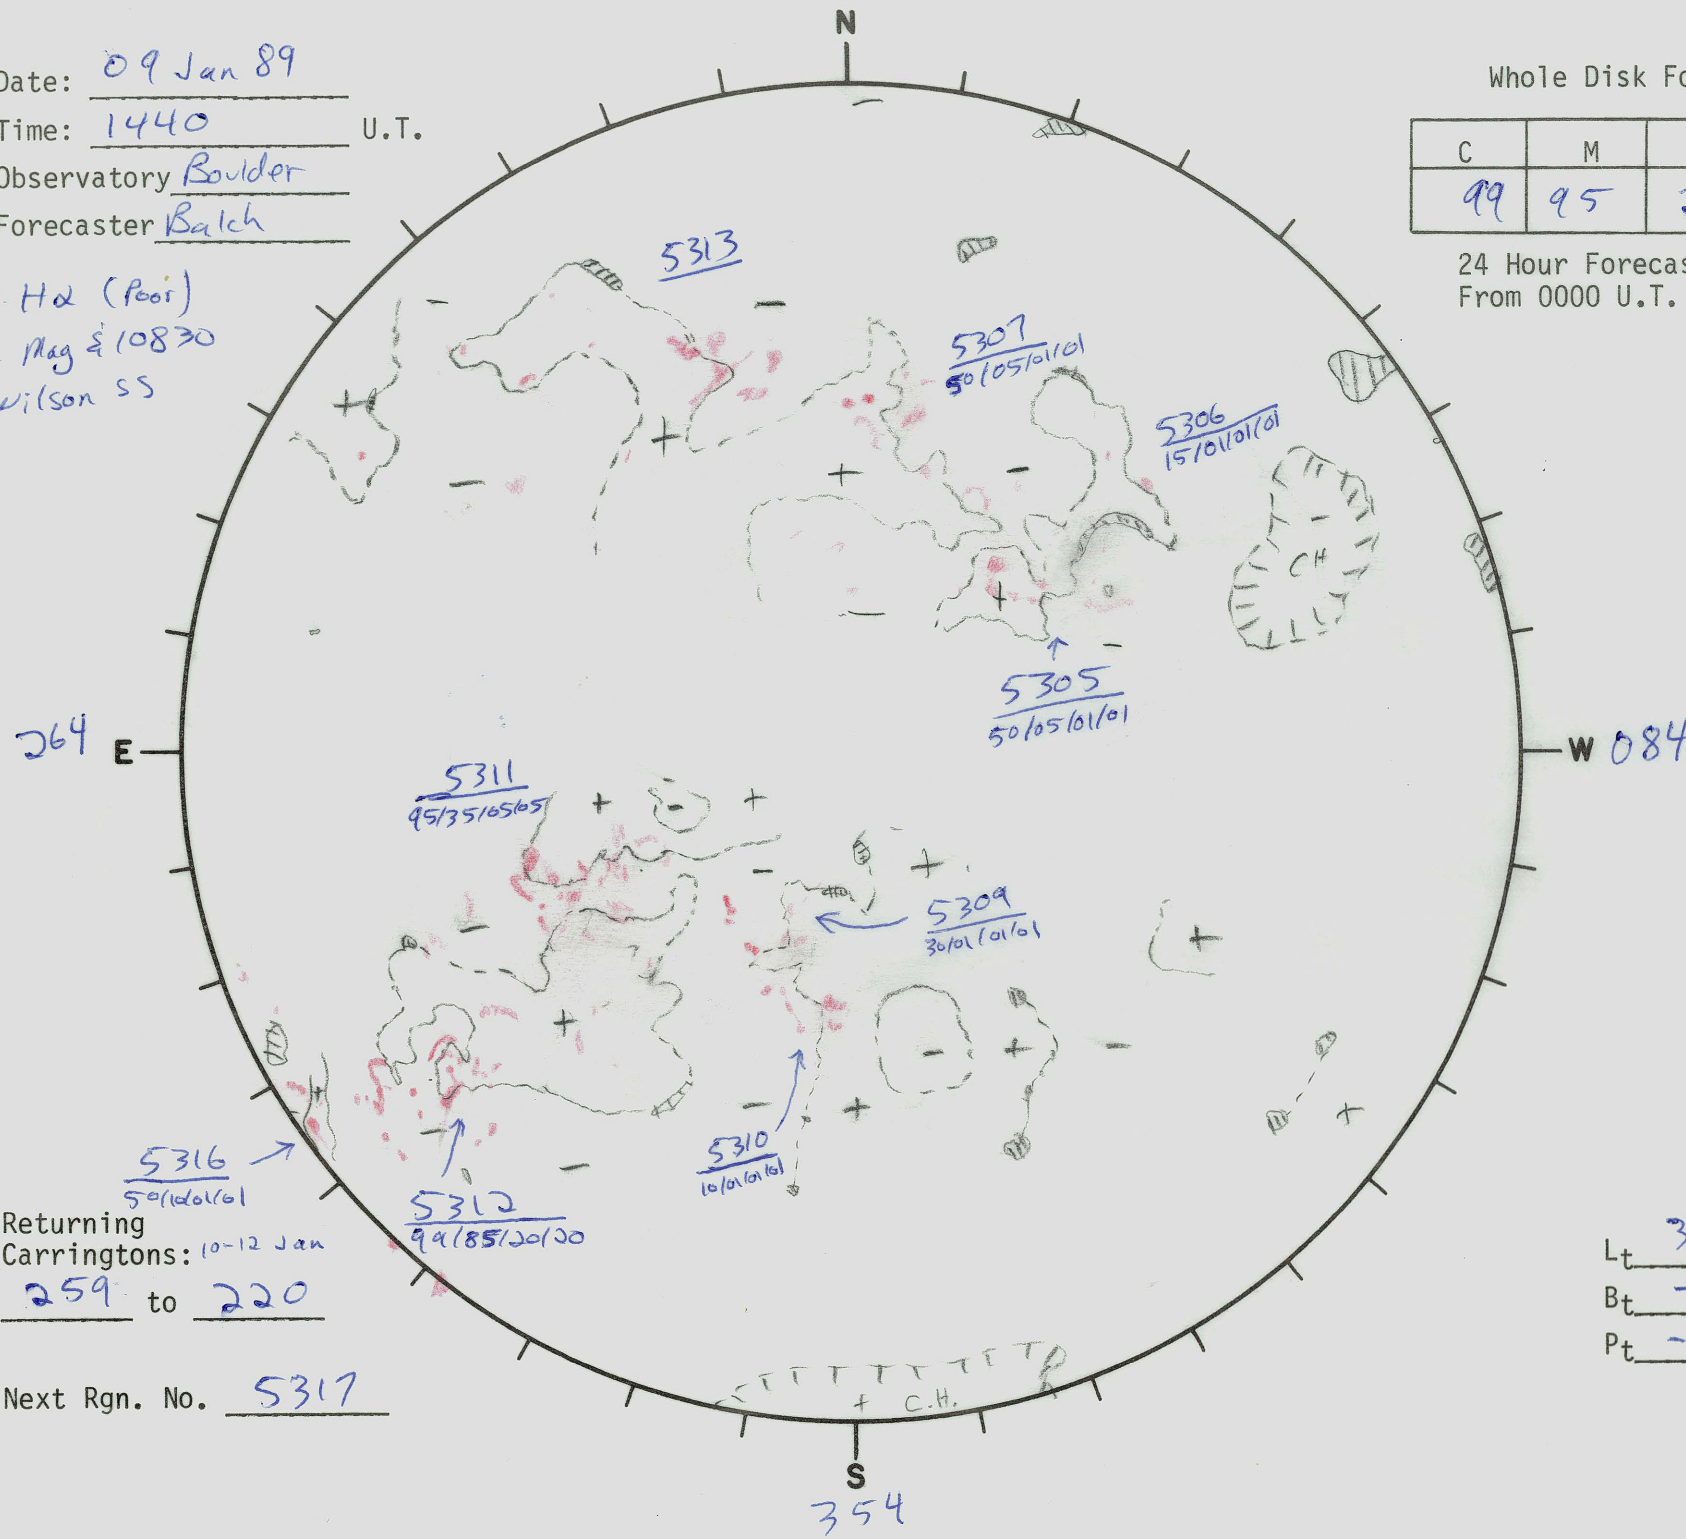 N
Date: 09 Jan 89
Time: 1440 U.T.
Observatory Boulder
Forecaster Balch
Hα (Poor)
Mag & 10830
Wilson SS
Whole Disk Fo
C M
99 95
24 Hour Forecas
From 0000 U.T.
5313
5307
50/05/01/01
5306
15/01/01/01
- CH
5305
50/05/01/01
264 E
W 084
5311
95/35/05/05
5309
30/01/01/01
5310
10/01/01/01
5316
50/10/01/01
5312
99/85/20/20
Returning
Carringtons: 10-12 Jan
259 to 220
Next Rgn. No. 5317
+ C.H.
Lt 3
Bt -
Pt -
S
354